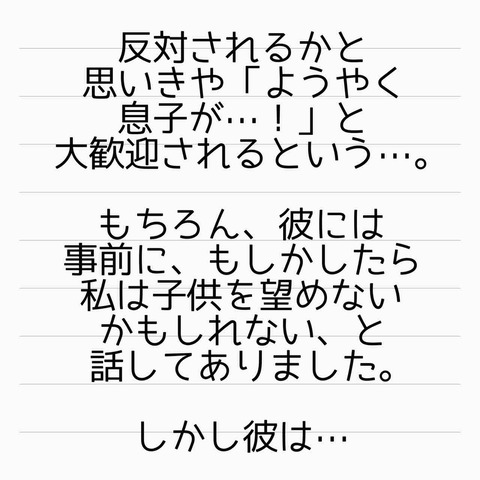 反対されるかと
思いきや「ようやく
息子が…！」と
大歓迎されるという…。
もちろん、彼には
事前に、もしかしたら
私は子供を望めない
かもしれない、と
話してありました。
しかし彼は…